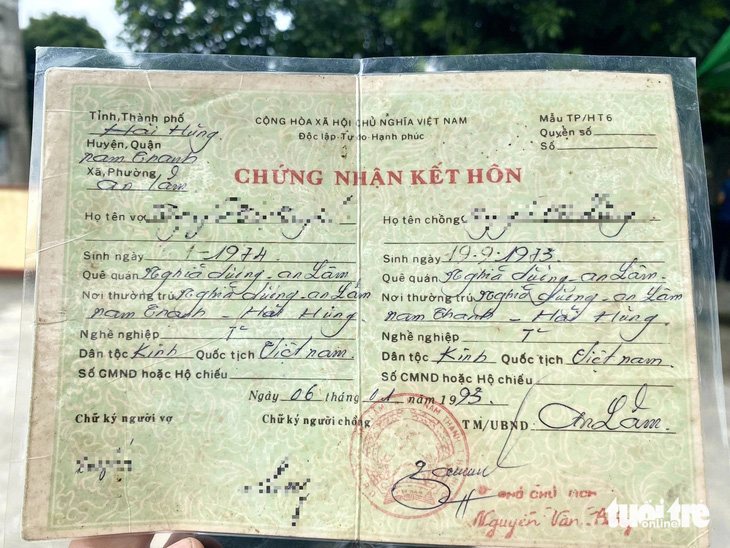 Tỉnh, Thành phố
Hải Hưng
Huyện, Quận
nam Thanh
Xã, Phường
An Lâm
CỘNG HÒA XÃ HỘI CHỦ NGHĨA VIỆT NAM
Độc lập-Tự do-Hạnh phúc
Mẫu TP/HT6
Quyển số
Số
CHỨNG NHẬN KẾT HÔN
Họ tên vợ
Sinh ngày 1-1974
Quê quán Nghĩa dương - an Lâm
Nơi thường trú Nghĩa dương - an Lâm
nam Thanh - Hải Hưng
Nghề nghiệp
Dân tộc Kinh Quốc tịch Việt nam
Số CMND hoặc Hộ chiếu
Họ tên chồng
Sinh ngày 19-9-1973
Quê quán Nghĩa dương - an Lâm
Nơi thường trú Nghĩa dương - an Lâm
nam Thanh - Hải Hưng
Nghề nghiệp
Dân tộc Kinh Quốc tịch Việt nam
Số CMND hoặc Hộ chiếu
Ngày 06 tháng 01 năm 1993
Chữ ký người vợ
Chữ ký người chồng
TM/UBND An Lâm
Nguyễn Văn
tuổi trẻ
online